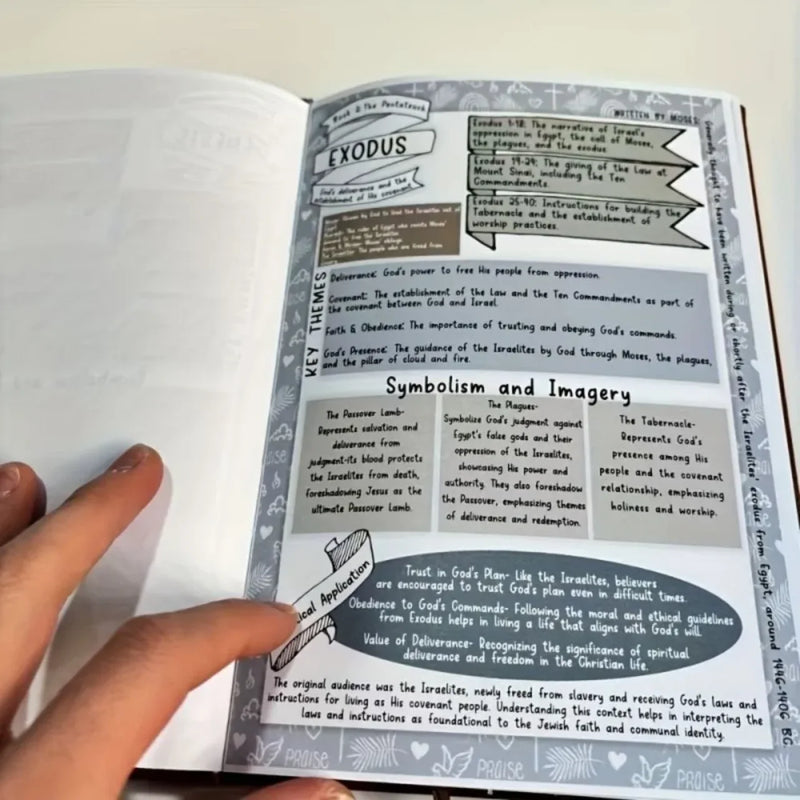 Book 2: The Pentateuch
EXODUS
God's deliverance and the
establishment of His covenant
WRITTEN BY MOSES:
Generally thought to have been written during or shortly after the Israelites' exodus from Egypt, around 1446-1406 BC
Exodus 1-18: The narrative of Israel's
oppression in Egypt, the call of Moses,
the plagues, and the exodus
Exodus 19-24: The giving of the Law at
Mount Sinai, including the Ten
Commandments.
Exodus 25-40: Instructions for building the
Tabernacle and the establishment of
worship practices.
KEY THEMES
Deliverance: God's power to free His people from oppression.
Covenant: The establishment of the Law and the Ten Commandments as part of
the covenant between God and Israel.
Faith & Obedience: The importance of trusting and obeying God's commands.
God's Presence: The guidance of the Israelites by God through Moses, the plagues,
and the pillar of cloud and fire.
Symbolism and Imagery
The Passover Lamb-
Represents salvation and
deliverance from
judgment-its blood protects
the Israelites from death,
foreshadowing Jesus as the
ultimate Passover Lamb.
The Plagues-
Symbolize God's judgment against
Egypt's false gods and their
oppression of the Israelites,
showcasing His power and
authority. They also foreshadow
the Passover, emphasizing themes
of deliverance and redemption.
The Tabernacle-
Represents God's
presence among His
people and the covenant
relationship, emphasizing
holiness and worship.
ical Application
Trust in God's Plan- Like the Israelites, believers
are encouraged to trust God's plan even in difficult times.
Obedience to God's Commands- Following the moral and ethical guidelines
from Exodus helps in living a life that aligns with God's will.
Value of Deliverance- Recognizing the significance of spiritual
deliverance and freedom in the Christian life.
The original audience was the Israelites, newly freed from slavery and receiving God's laws and
instructions for living as His covenant people. Understanding this context helps in interpreting the
laws and instructions as foundational to the Jewish faith and communal identity.
PRAISE
PRAISE
PRAISE